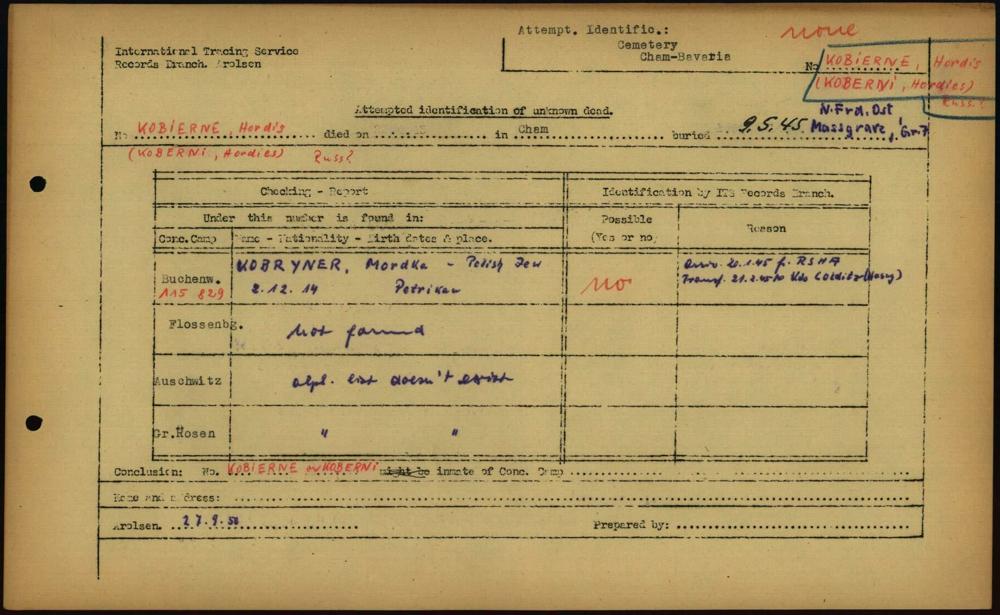 Attempt. Identific.:
Cemetery
Cham-Bavaria
none
International Tracing Service
Records Branch. Arolsen
No KOBIERNE, Hordis
(KOBERNI, Hordies)
Russ?
Attempted identification of unknown dead.
N. Frd. Ost
No KOBIERNE, Hordis died on in Cham buried 9.5.45 Massgrave, Gr.7
(KOBERNI, Hordies) Russ?
Checking - Report
Identification by ITS Records Branch.
Under this number is found in:
Possible
(Yes or no)
Reason
Conc.Camp
Name - Nationality - Birth dates & place.
Buchenw.
115 829
KOBRYNER, Mordka - Polish Jew
2.12.14 Petrikau
no
arriv. 20.1.45 f. RSHA
Transf. 21.2.45 to Kdo Colditz (Hasag)
Flossenbg.
not found
Auschwitz
alph. list doesn't exist
Gr.Rosen
" "
Conclusion: No. KOBIERNE or KOBERNI might be inmate of Conc. Camp
Name and address:
Arolsen. 27.9.50
Prepared by: